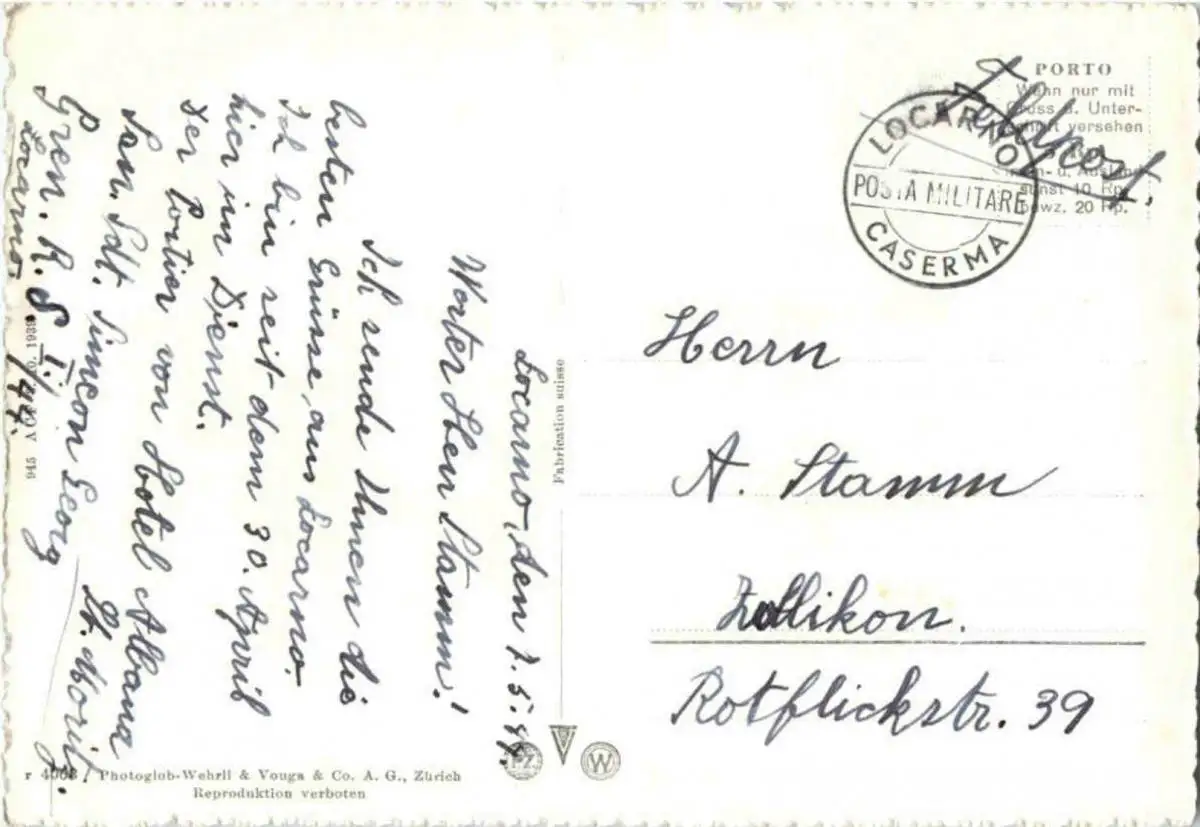 Locarno, den 7.5.44.
Werter Herr Stamm!
Ich sende Ihnen die
besten Grüsse, aus Locarno.
Ich bin seit dem 30. April
hier im Dienst.
Der Portier von Hotel Albana
St. Moritz.
San. Sdt. Simeon Georg
Gren. R. S. I./44.
Locarno.
Feldpost.
PORTO
Wenn nur mit
Gruss u. Unter-
versehen
u. Ausland
sonst 10 Rp.
bzw. 20 Rp.
LOCARNO
POSTA MILITARE
CASERMA
Herrn
A. Stamm
Zollikon.
Rotflickstr. 39
Fabrication suisse
PZ
W
r 4063 / Photoglob-Wehrli & Vouga & Co. A. G., Zürich
Reproduktion verboten